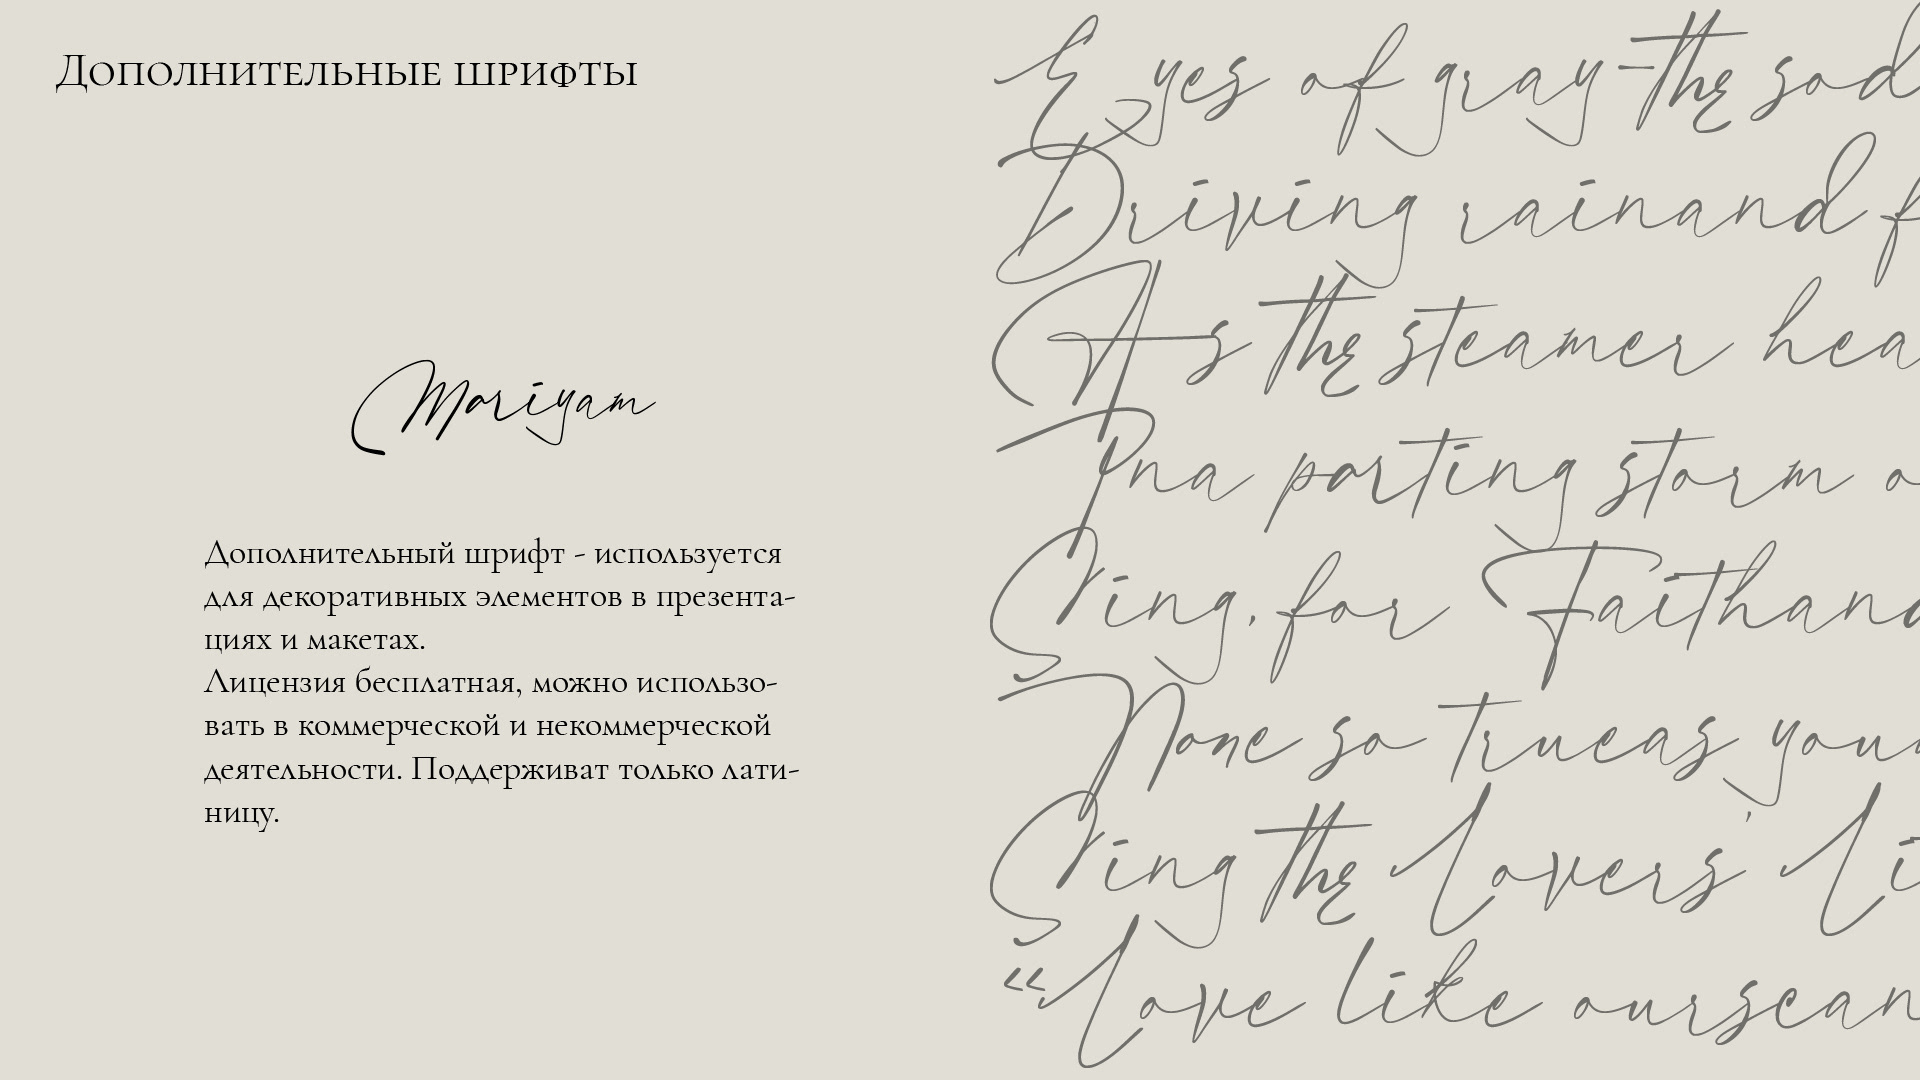 Дополнительные шрифты
Mariyam
Дополнительный шрифт - используется
для декоративных элементов в презента-
циях и макетах.
Лицензия бесплатная, можно использо-
вать в коммерческой и некоммерческой
деятельности. Поддерживат только лати-
ницу.
Eyes of gray-the sod
Driving rainand f
As the steamer hea
Ina parting storm o
Sing, for Faithand
None so trueas you
Sing the Lovers' Li
“Love like ourscan